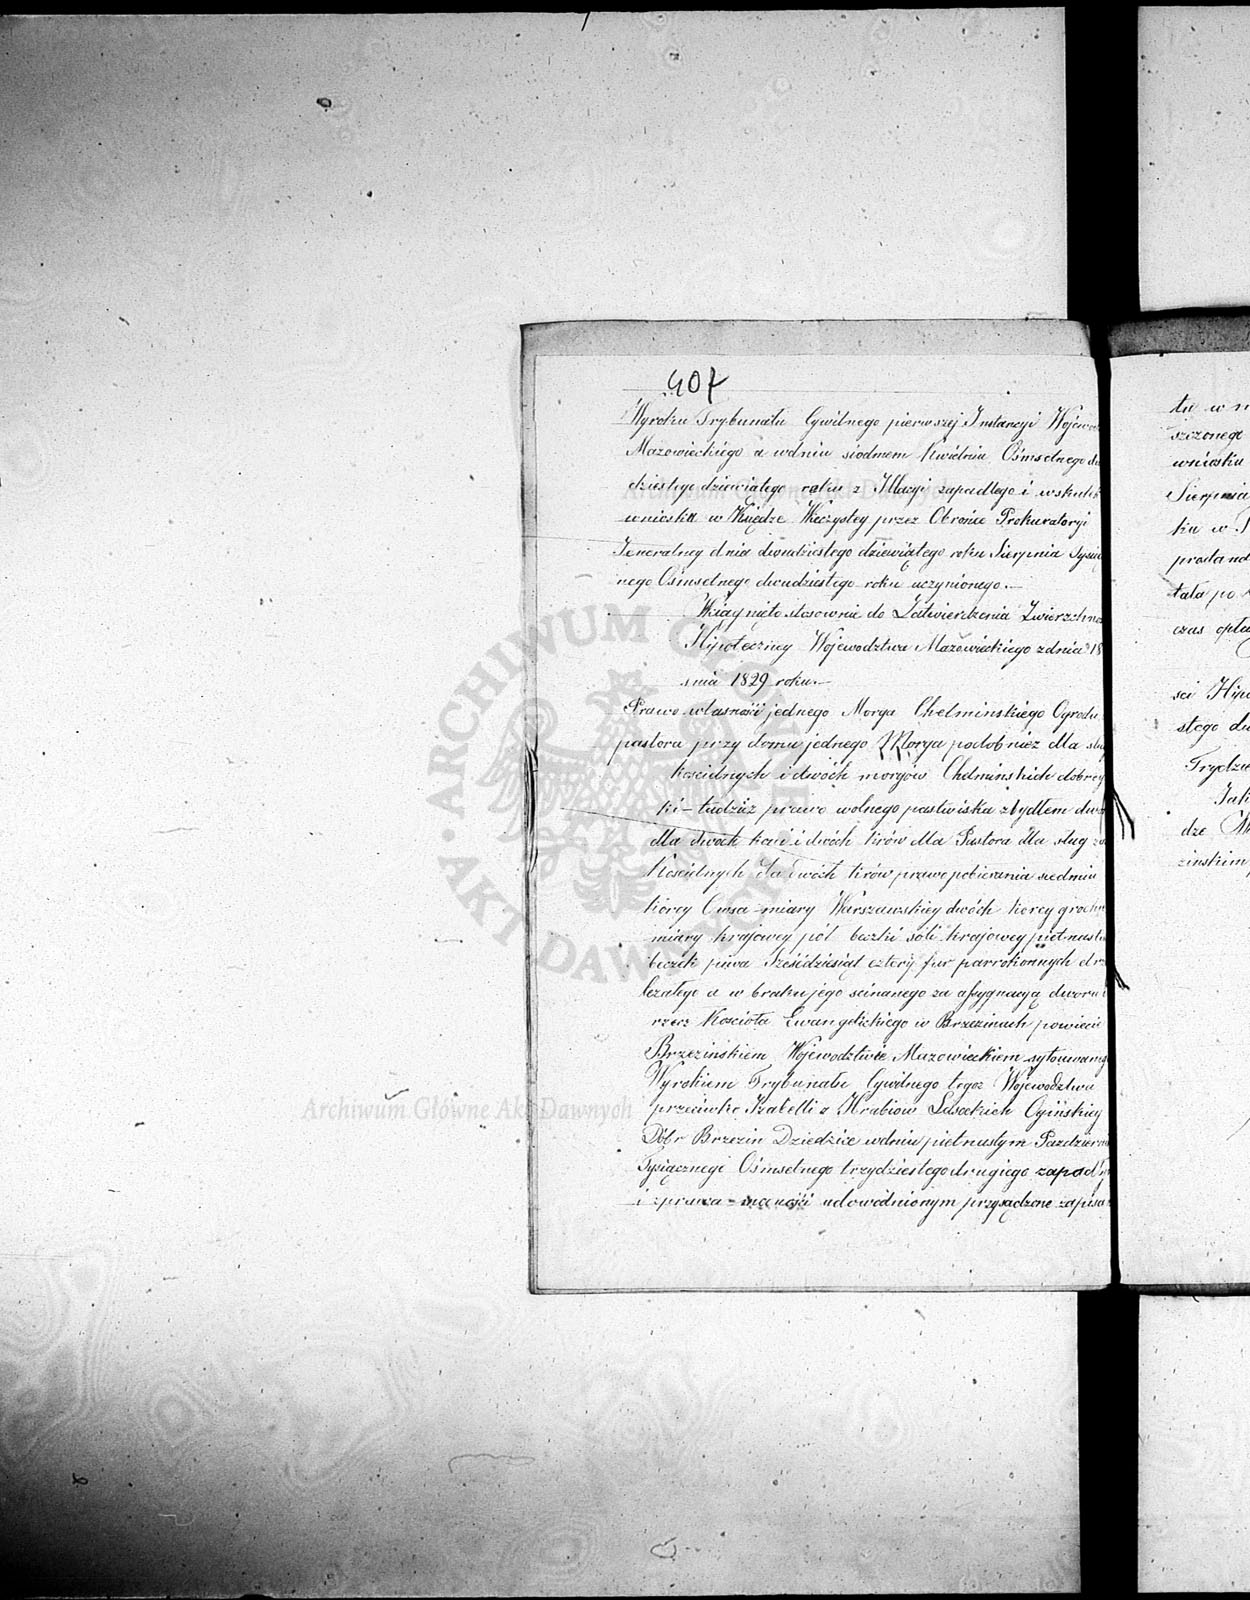 407
Wyroku Trybunału Cywilnego pierwszej Instancyi Wojewod
Mazowieckiego a wdniu siodmem Kwietnia Ośmsetnego dw
dziestego dziewiątego roku z Illacyi zapadłego i wskutek
wniosku w Księdze Wieczystey przez Obrońce Prokuratoryi
Jeneralney dnia dwudziestego dziewiątego roku Sierpnia Tysią
nego Ośmsetnego dwudziestego roku uczynionego.—
Wciągnięto stosownie do Zatwierdzenia Zwierzchno
Hipoteczney Województwa Mazowieckiego zdnia 18
śnia 1829 roku.—
Prawo własności jednego Morga Chelminskiego Ogrodu
pastora przy domu jednego Morga podobnież dla słu
kościelnych i dwóch morgów Chelminskich dobrey
ki – tudzież prawo wolnego pastwiska z bydłem dwo
dla dwóch koni i dwóch krów dla Pastora dla sług
Kościelnych dla dwóch krów prawo pobierania siedmiu
korcy Owsa miary Warszawskiey dwóch korcy grochu
miary krajowey pół beczki soli krajowey piętnastu
beczek piwa Sześćdziesiąt cztery fur parrokonnych drz
leżałego a w braku jego scinanego za assygnacyą dworu
rzecz Kościoła Ewangelickiego w Brzezinach powiecie
Brzezińskiem Województwie Mazowieckiem sytuowanego
Wyrokiem Trybunału Cywilnego tegoż Województwa
przeciwko Izabelli z Hrabiow Lasockich Ogińskiey
Dóbr Brzezin Dziedzice wdniu piętnastym Pazdziern
Tysiącznego Ośmsetnego trzydziestego drugiego zapadł
i zprawo – mocności udowodnionym przysądzone zapisa
tu w
szczonego
wniosku
Sierpnia
ku w
czas opła
ści Hipo
stego dw
Trydzie
Jak
dze
zinskim
ARCHIWUM GŁÓWNE AKT DAWNYCH
Archiwum Główne Akt Dawnych
Archiwum Główne Akt Dawnych